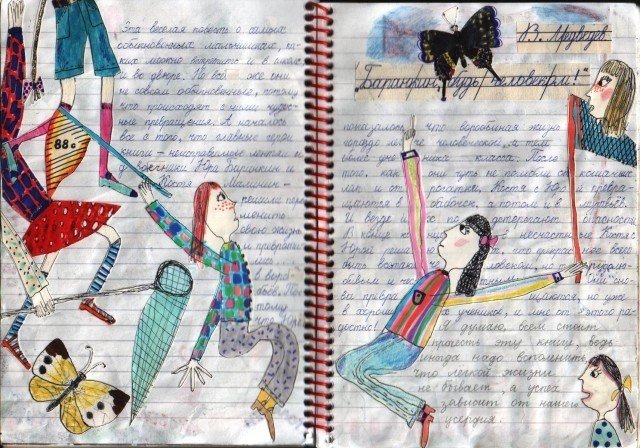 Эта веселая повесть о самых
обыкновенных мальчишках, ка-
ких можно встретить и в школе
и во дворе. Но всё же они
не совсем обыкновенные, потому
что происходят с ними чудес-
ные превращения. А началось
все с того, что главные герои
книги – неисправимые лентяи и
двоечники Юра Баранкин и
Костя Малинин –
решили пере
менить
свою жизнь
и преврати
в воро
бьёв. По
тому
что
88с
В. Медведев
"Баранкин, будь человеком!"
показалось, что воробьиная жизнь
гораздо человеческой, и тем
более ученика класса. После
того, как они чуть не попали от кошачьих
лап и от рогатки, Костя с Юрой превра-
щаются в бабочек, а потом и в муравьев.
И везде их подстерегают опасности.
В конце несчастные Костя
Юрой решили, что лучше всего
быть
превращаются, но уже
в хороших учеников, и мне от этого ра-
достно! Я думаю, всем стоит
прочесть эту книгу, ведь
иногда надо вспомнить,
что легкой жизни
не бывает, а успех
зависит от нашего
усердия.